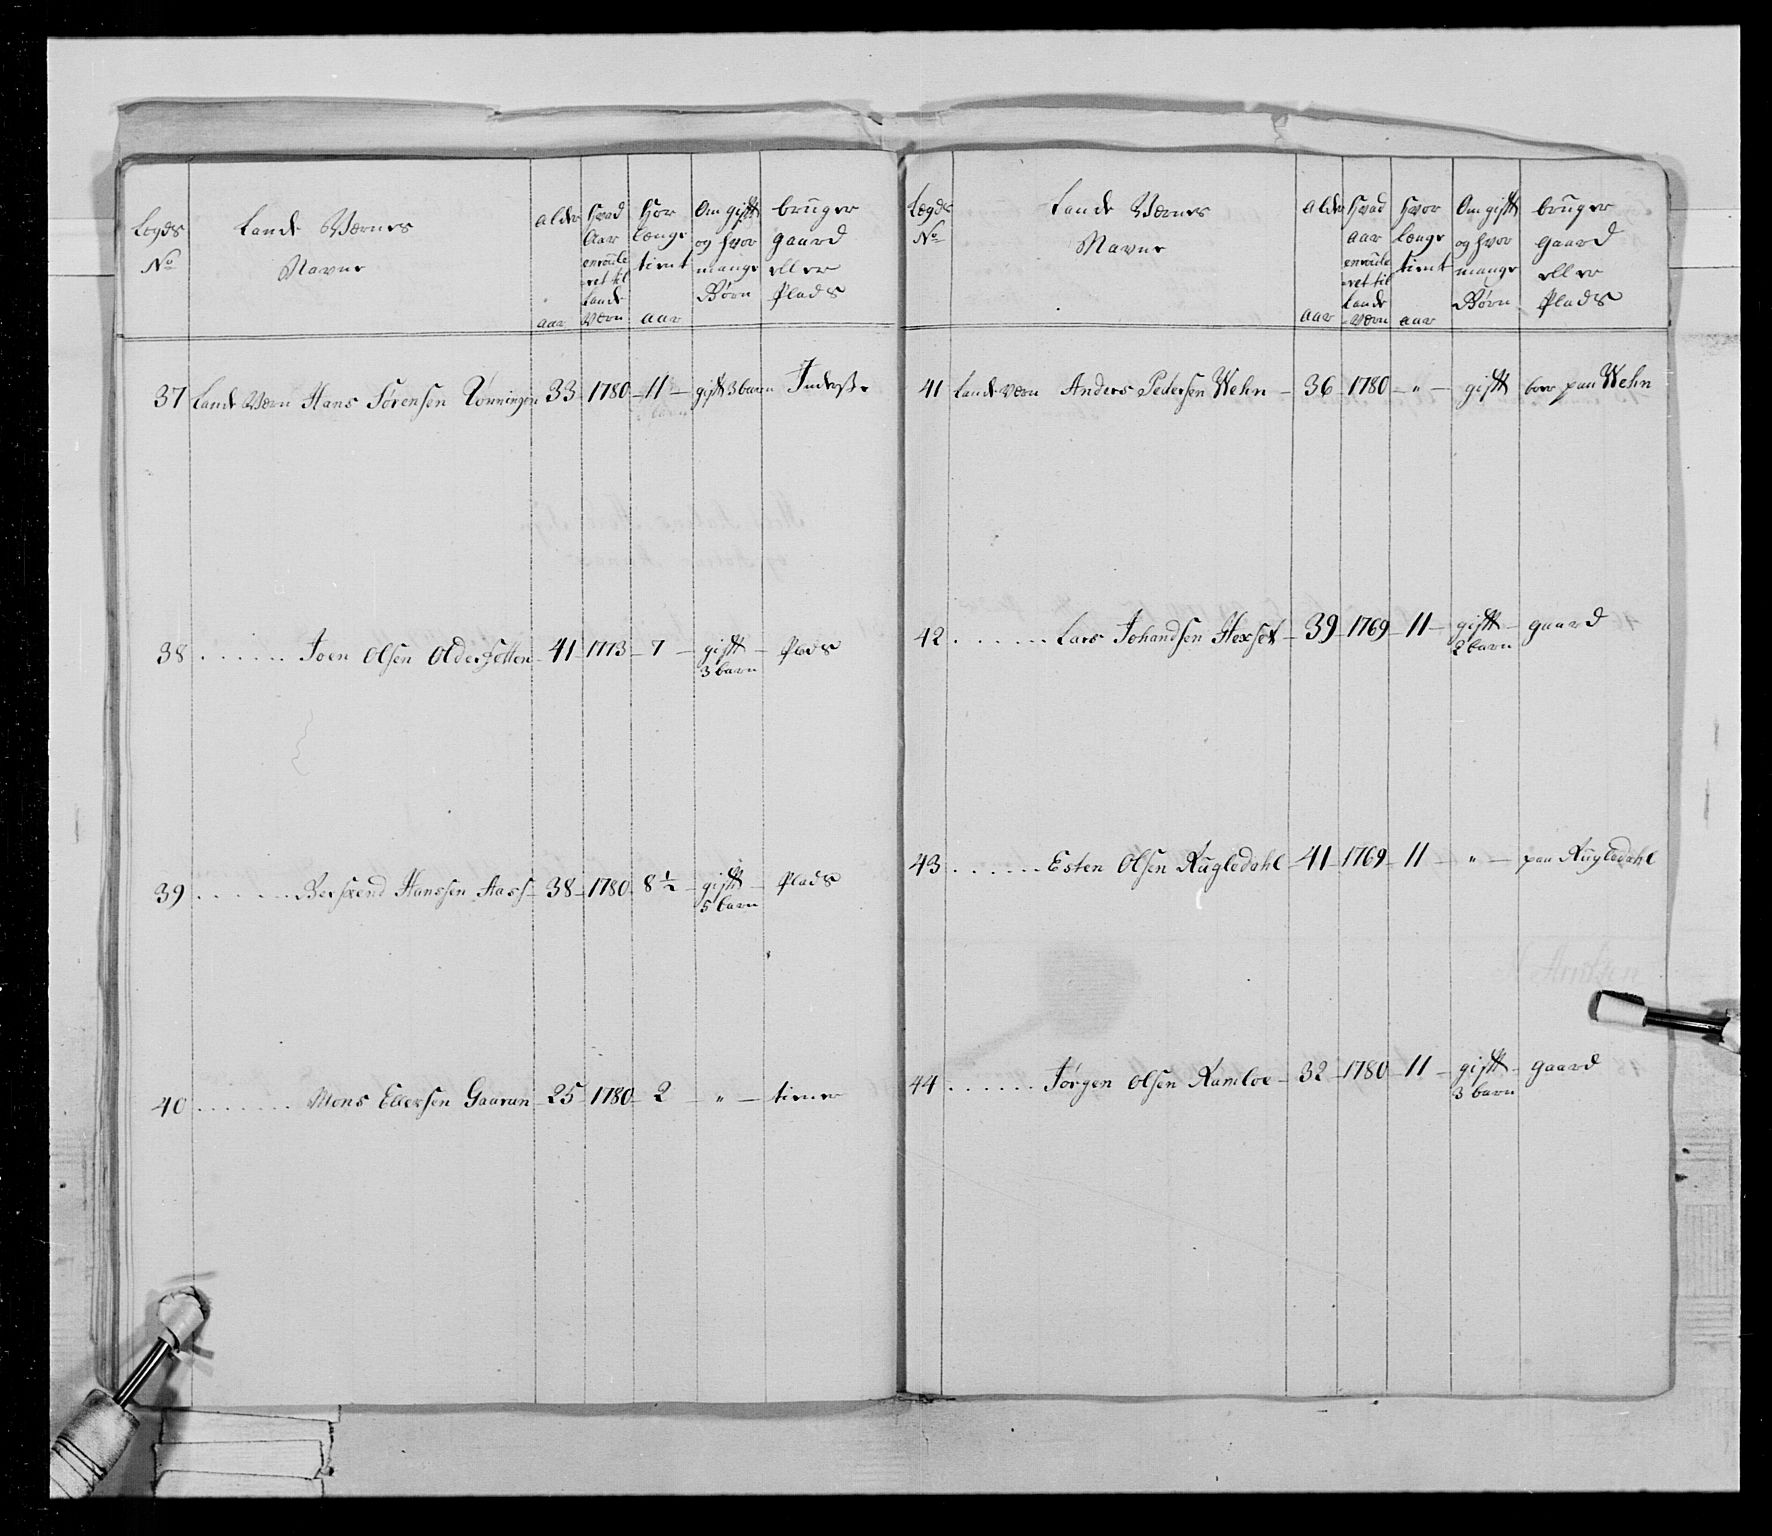 Legds No | Lande Værnes Navne | alder aar | Hvad Aar enroule-ret til Lande Værn | Hor længe tient aar | Om gift og hvor mange Børn | bruger gaard eller Plads
37 Lande Værn Hans Sörensen Rönningen 33 1780 11 gift 3 barn Inderst
38 . . . . . . Joen Olsen Oldersletten 41 1773 7 gift 3 barn Plads
39 . . . . . . Hanssen Aass 38 1780 8½ gift 5 barn Plads
40 . . . . . . Mons Ellersen Gaarun 25 1780 2 " tiener
Lægds No | Lande Værnes Navne | alder aar | Hvad aar enroule-ret til Lande-Værn | Hvor længe tient aar | Om gift og hvor mange Børn | bruger gaard eller Plads
41 Lande Værn Anders Pedersen Wehn 36 1780 " gift boer paa Wehn
42 . . . . . . Lars Johandsen Hexset 39 1769 11 gift 2 barn gaard
43 . . . . . . Esten Olsen Kugledahl 41 1769 11 " paa Kugledahl
44 . . . . . . Jörgen Olsen Ramloe 32 1780 11 gift 3 barn gaard